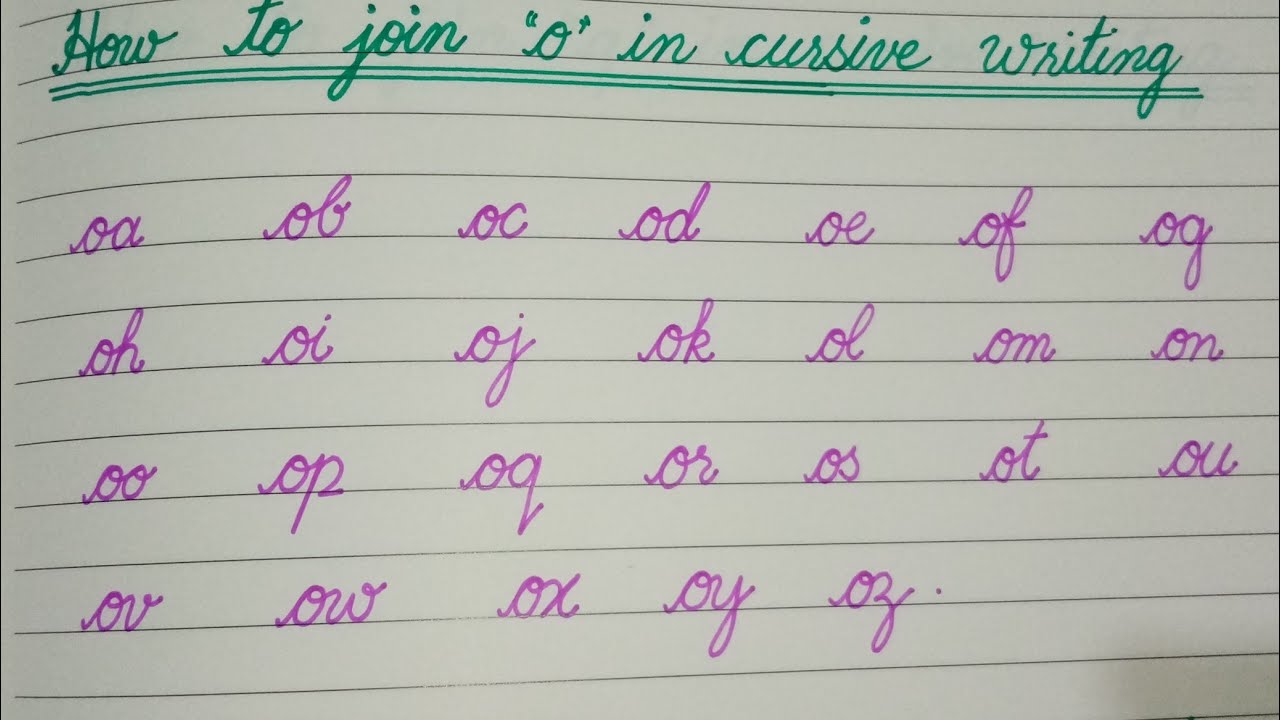 How to join "o" in cursive writing
oa ob oc od oe of og
oh oi oj ok ol om on
oo op oq or os ot ou
ov ow ox oy oz.